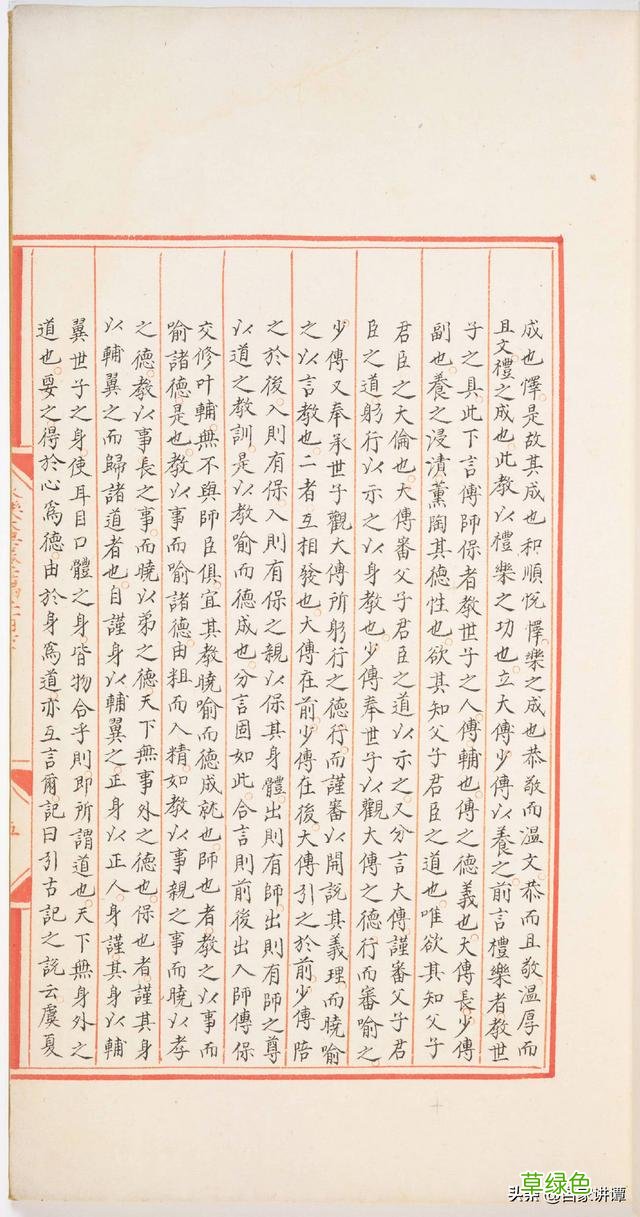 成也懌是故其成也和順悅懌樂之成也恭敬而溫文恭而且敬溫厚而
且文禮之成也此教以禮樂之功也立大傅少傅以養之前言禮樂者教世
子之具此下言傅師保者教世子之人傅輔也傅之德義也大傅長少傅
副也養之浸漬薰陶其德性也欲其知父子君臣之道也唯欲其知父子
君臣之大倫也大傅審父子君臣之道以示之又分言大傅謹審父子君
臣之道躬行以示之以身教也少傅奉世子以觀大傅之德行而審喻之
少傅又奉承世子觀大傅所躬行之德行而謹審以開說其義理而曉喻
之以言教也二者互相發也大傅在前少傅在後大傅引之於前少傅陪
之於後入則有保入則有保之親以保其身體出則有師出則有師之尊
以道之教訓是以教喻而德成也分言固如此合言則前後出入師傅保
交修叶輔無不與師臣俱宜其教曉喻而德成就也師也者教之以事而
喻諸德是也教以事而喻諸德由粗而入精如教以事親之事而曉以孝
之德教以事長之事而曉以弟之德天下無事外之德也保也者謹其身
以輔翼之而歸諸道者也自謹身以輔翼之正身以正人身謹其身以輔
翼世子之身使耳目口體之身皆物合乎則即所謂道也天下無身外之
道也要之得於心為德由於身為道亦互言爾記曰引古記之說云虞夏
五
头条 @百家讲谭
草绿色